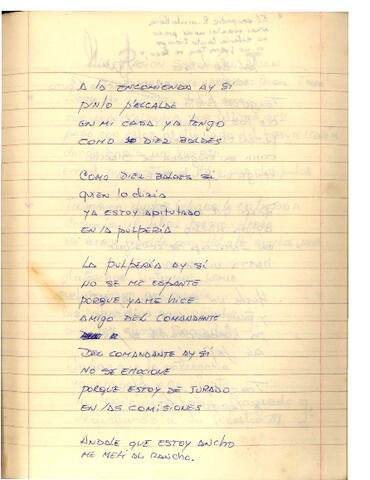 A la encomienda ay sí
pinto p'alcalde
en mi casa ya tengo
como diez baldes
Como diez baldes sí
quien lo diría
ya estoy apitutado
en la pulpería
La pulpería ay sí
no se me espante
porque ya me hice
amigo del comandante
Del comandante ay sí
no se emocione
porque estoy de jurado
en las comisiones
Andale que estoy ancho
me metí al rancho.